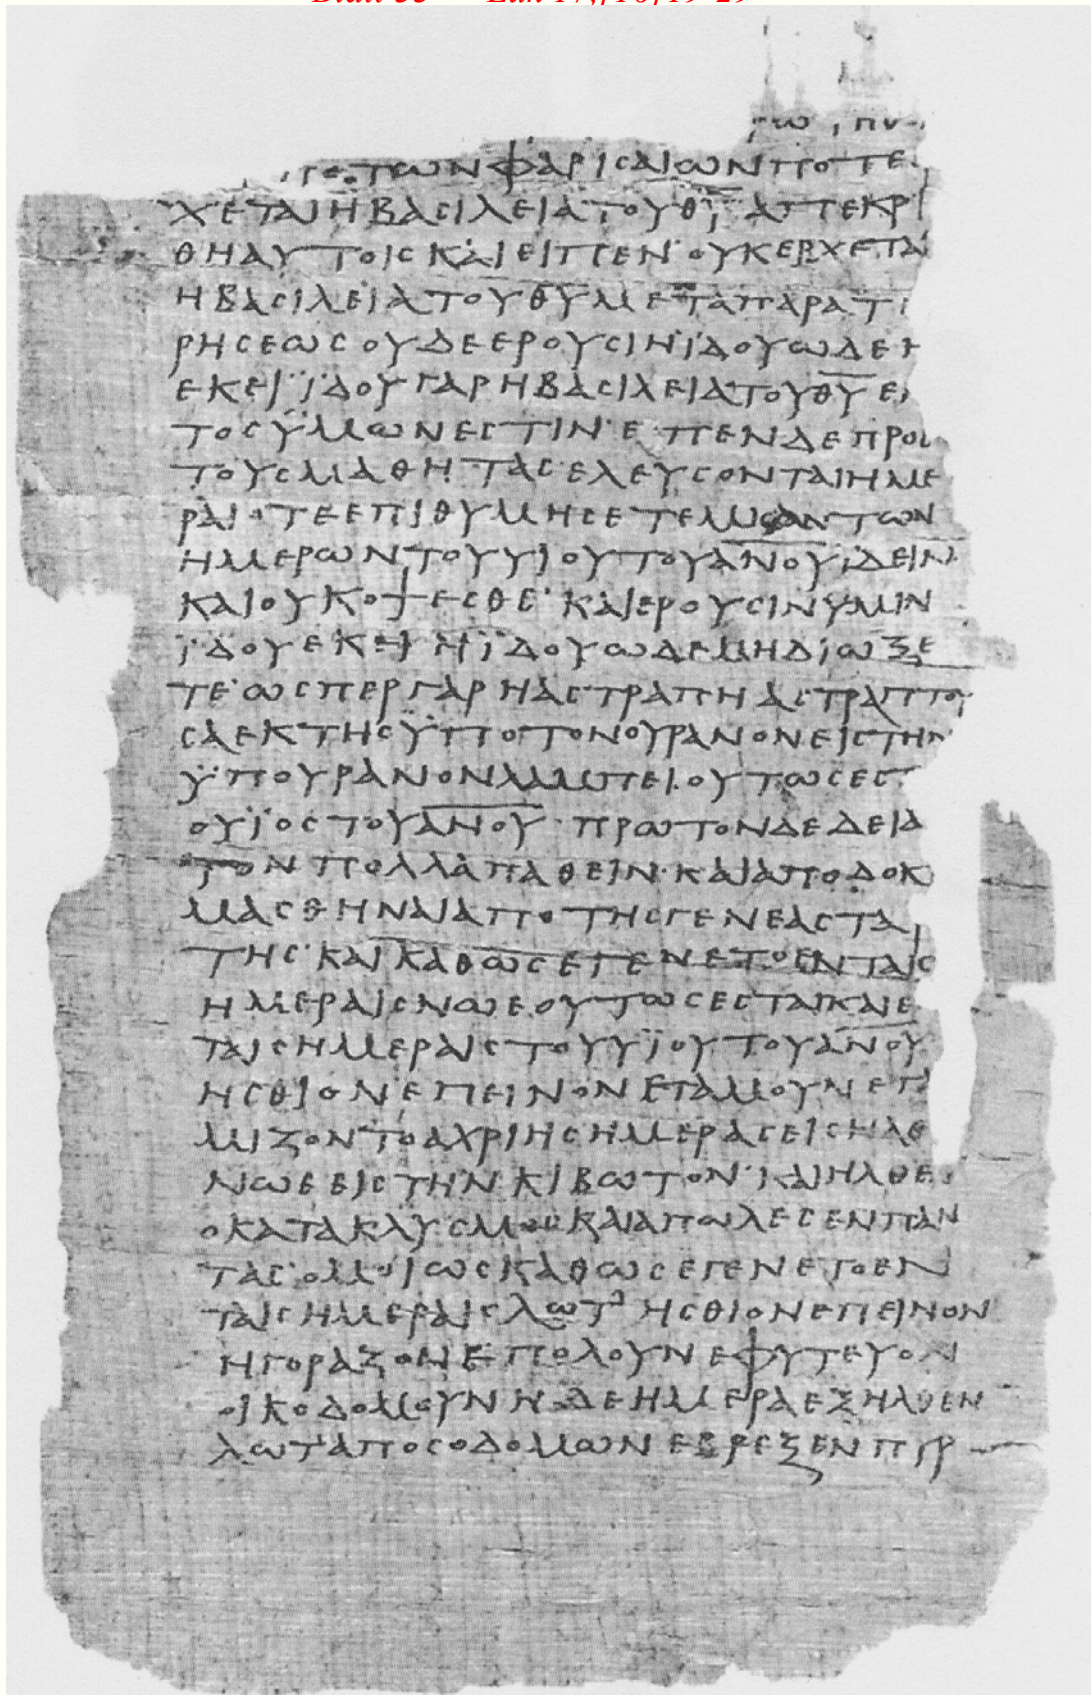 ΤΩΝΦΑΡΙΣΑΙΩΝΠΟΤΕ
ΧΕΤΑΙΗΒΑϹΙΛΕΙΑΤΟΥΘΥ ΑΠΕΚΡΙ
ΘΗΑΥΤΟΙϹΚΑΙΕΙΠΕΝ·ΟΥΚΕΡΧΕΤΑΙ
ΗΒΑϹΙΛΕΙΑΤΟΥΘΥΜΕΤΑΠΑΡΑΤΗ
ΡΗϹΕΩϹΟΥΔΕΕΡΟΥϹΙΝΪΔΟΥΩΔΕΗ
ΕΚΕΙ·ΪΔΟΥΓΑΡΗΒΑϹΙΛΕΙΑΤΟΥΘΥΕ
ΤΟϹΫΜΩΝΕϹΤΙΝ·ΕΙΠΕΝΔΕΠΡΟϹ
ΤΟΥϹΜΑΘΗΤΑϹ·ΕΛΕΥϹΟΝΤΑΙΗΜΕ
ΡΑΙΟΤΕΕΠΙΘΥΜΗϹΕΤΕΜΙΑΝΤΩΝ
ΗΜΕΡΩΝΤΟΥΥΙΟΥΤΟΥΑΝΟΥΪΔΕΙΝ
ΚΑΙΟΥΚΟΨΕϹΘΕ·ΚΑΙΕΡΟΥϹΙΝΫΜΙΝ
ΪΔΟΥΕΚΕΙΗΪΔΟΥΩΔΕΜΗΔΙΩΞΕ
ΤΕ·ΩϹΠΕΡΓΑΡΗΑϹΤΡΑΠΗΑϹΤΡΑΠΤΟΥ
ϹΑΕΚΤΗϹΫΠΟΤΟΝΟΥΡΑΝΟΝΕΙϹΤΗΝ
ΫΠΟΥΡΑΝΟΝΛΑΜΠΕΙ·ΟΥΤΩϹΕϹΤ
ΟΥΪΟϹΤΟΥΑΝΟΥ·ΠΡΩΤΟΝΔΕΔΕΙΑ
ΤΟΝΠΟΛΛΑΠΑΘΕΙΝ·ΚΑΙΑΠΟΔΟΚΙ
ΜΑϹΘΗΝΑΙΑΠΟΤΗϹΓΕΝΕΑϹΤΑΥ
ΤΗϹ·ΚΑΙΚΑΘΩϹΕΓΕΝΕΤΟΕΝΤΑΙϹ
ΗΜΕΡΑΙϹΝΩΕΟΥΤΩϹΕϹΤΑΙΚΑΙΕ
ΤΑΙϹΗΜΕΡΑΙϹΤΟΥΥΪΟΥΤΟΥΑΝΟΥ
ΗϹΘΙΟΝΕΠΕΙΝΟΝΕΓΑΜΟΥΝΕΓΑ
ΜΙΖΟΝΤΟΑΧΡΙΗϹΗΜΕΡΑϹΕΙϹΗΛΘΕ
ΝΩΕΕΙϹΤΗΝΚΙΒΩΤΟΝ·ΚΑΙΗΛΘΕΝ
ΟΚΑΤΑΚΛΥϹΜΟϹΚΑΙΑΠΩΛΕϹΕΝΠΑΝ
ΤΑϹ·ΟΜΟΙΩϹΚΑΘΩϹΕΓΕΝΕΤΟΕΝ
ΤΑΙϹΗΜΕΡΑΙϹΛΩΤ'ΗϹΘΙΟΝΕΠΕΙΝΟΝ
ΗΓΟΡΑΖΟΝΕΠΩΛΟΥΝΕΦΥΤΕΥΟΝ
ΟΙΚΟΔΟΜΟΥΝΗΔΕΗΜΕΡΑΕΞΗΛΘΕΝ
ΛΩΤ'ΑΠΟϹΟΔΟΜΩΝΕΒΡΕΞΕΝΠΥΡ